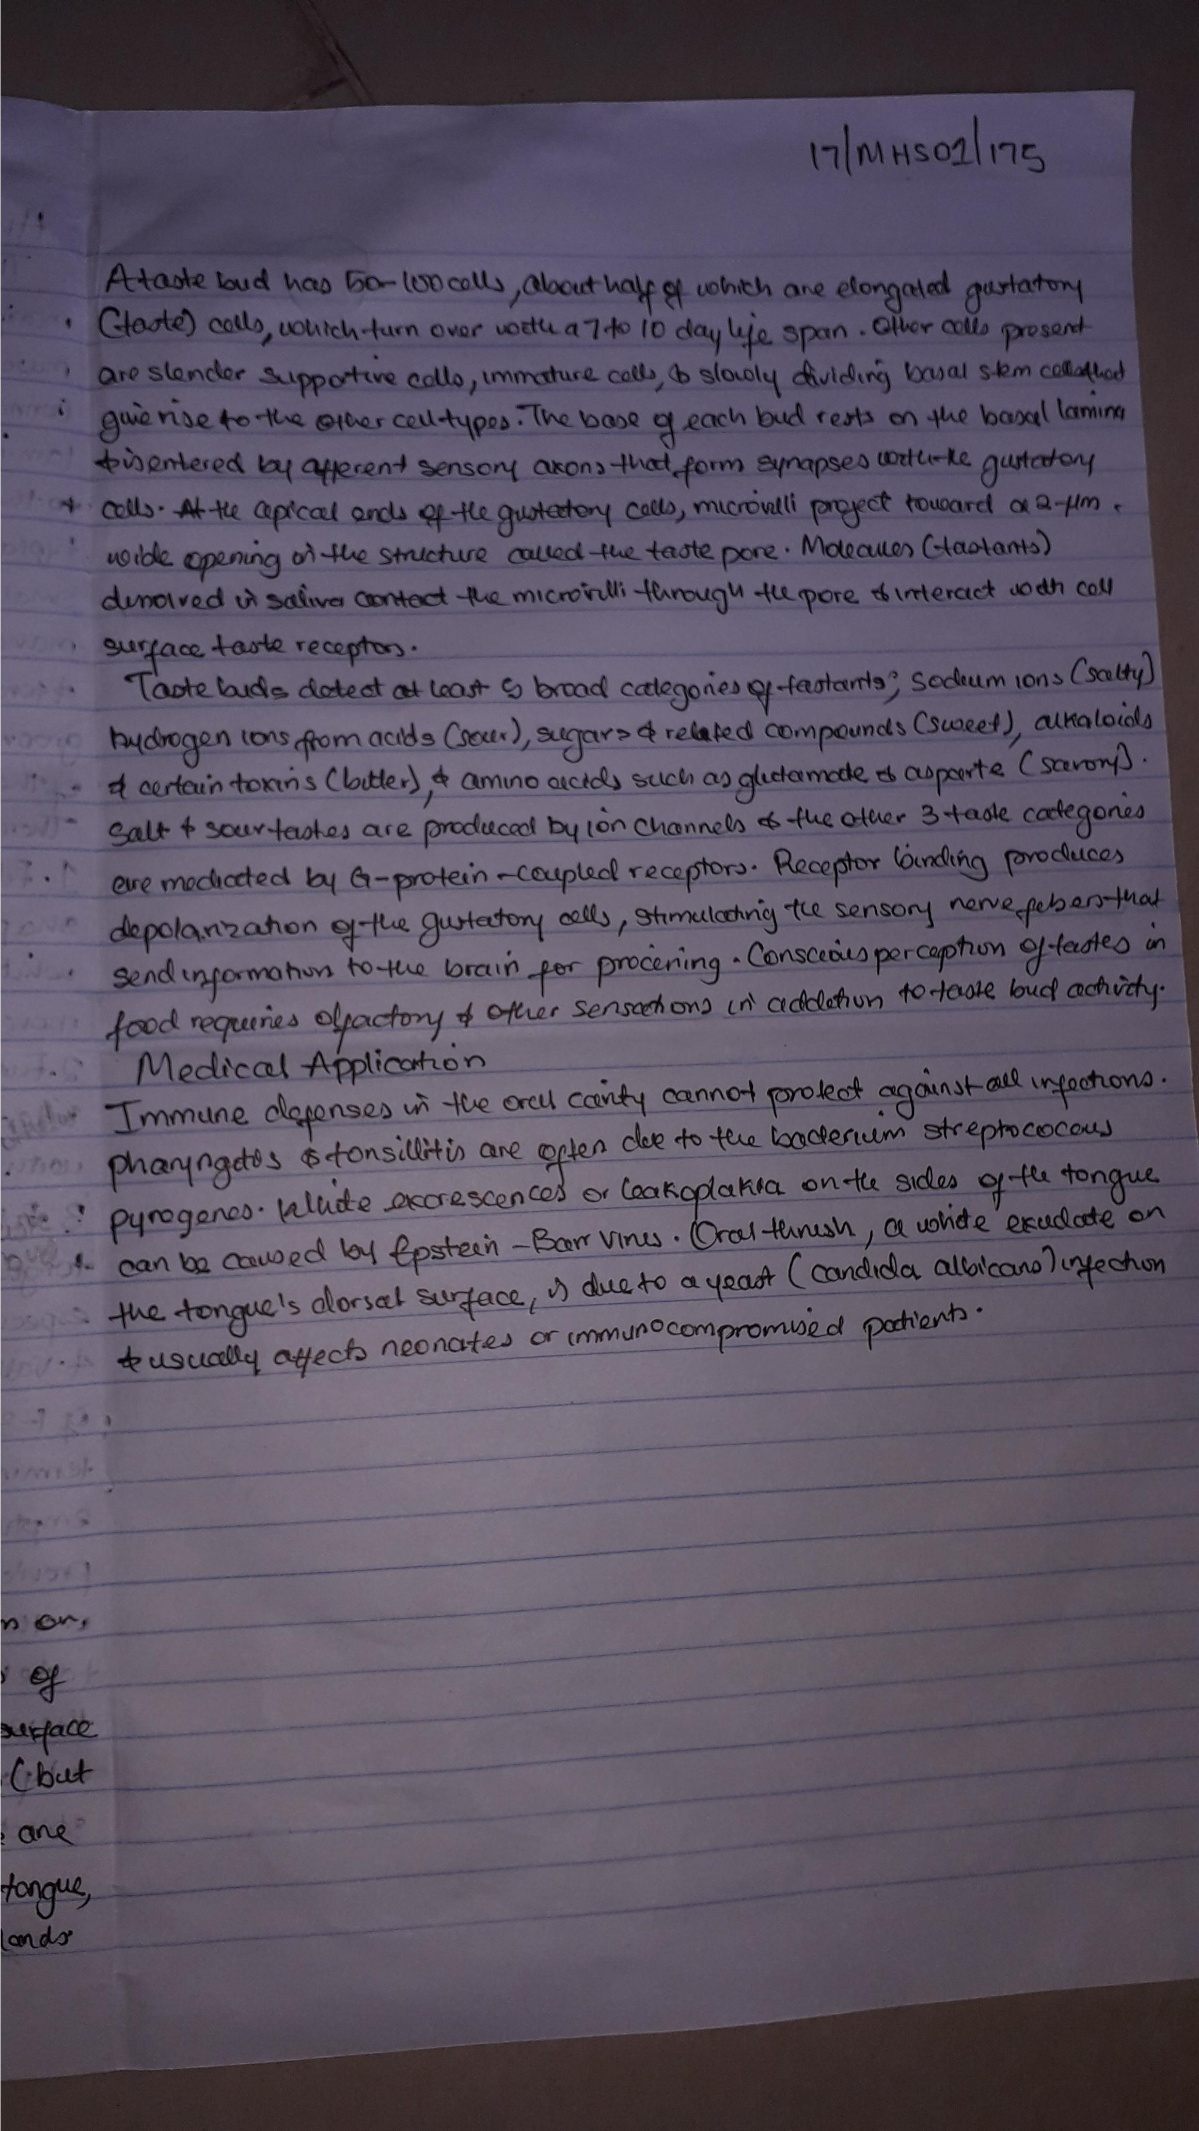 17/MHS01/175
A taste bud has 50-100 cells, about half of which are elongated gustatory
(taste) cells, which turn over with a 7 to 10 day life span. Other cells present
are slender supportive cells, immature cells, & slowly dividing basal stem cells that
give rise to the other cell types. The base of each bud rests on the basal lamina
& is entered by afferent sensory axons that form synapses with the gustatory
cells. At the apical ends of the gustatory cells, microvilli project toward a 2-μm
wide opening in the structure called the taste pore. Molecules (tastants)
dissolved in saliva contact the microvilli through the pore & interact with cell
surface taste receptors.
Taste buds detect at least 5 broad categories of tastants; sodium ions (salty)
hydrogen ions from acids (sour), sugars & related compounds (sweet), alkaloids
& certain toxins (bitter), & amino acids such as glutamate & asparte (savory).
Salt & sour tastes are produced by ion channels & the other 3 taste categories
are mediated by G-protein-coupled receptors. Receptor binding produces
depolarization of the gustatory cells, stimulating the sensory nerve febers that
send information to the brain for processing. Conscious perception of tastes in
food requires olfactory & other sensations in addition to taste bud activity.
Medical Application
Immune defenses in the oral cavity cannot protect against all infections.
pharyngitis & tonsillitis are often due to the bacterium streptococcus
pyrogenes. White excrescences or leakoplakia on the sides of the tongue
can be caused by Epstein-Barr virus. Oral thrush, a white exudate on
the tongue's dorsal surface, is due to a yeast (candida albicans) infection
& usually affects neonates or immunocompromised patients.
on
of
surface
(but
are
tongue,